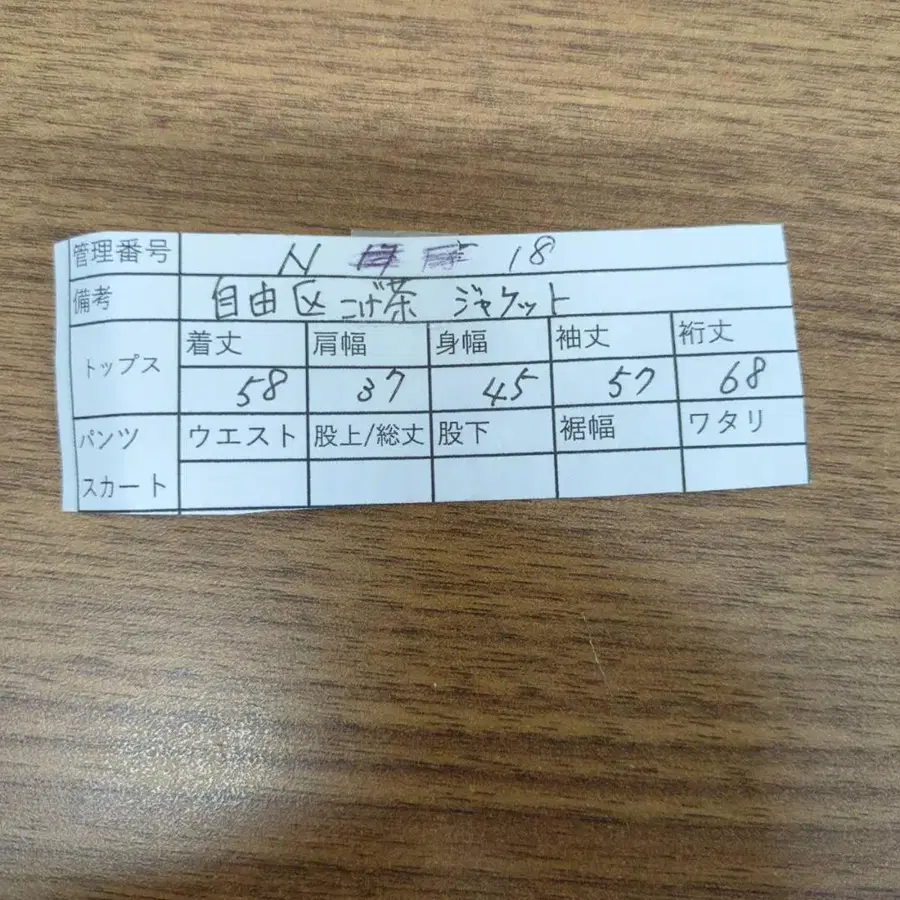 管理番号 N 18
備考 自由区 こげ茶 ジャケット
トップス 着丈 肩幅 身幅 袖丈 裄丈
58 37 45 57 68
パンツ ウエスト 股上/総丈 股下 裾幅 ワタリ
スカート